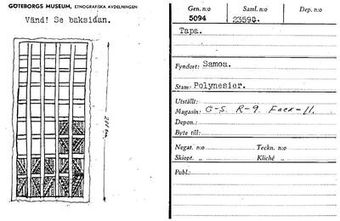 GÖTEBORGS MUSEUM, ETNOGRAFISKA AVDELNINGEN
Vänd! Se baksidan.
Gen. n:o
5094
Saml. n:o
23590.
Dep. n:o
Tapa.
Fyndort: Samoa.
Stam: Polynesier.
Utställt:
Magasin: G-5. R-9. Fack-11.
Depon.:
Byte till:
Negat. n:o
Teckn. n:o
Skiopt. „
Kliché „
Publ.: